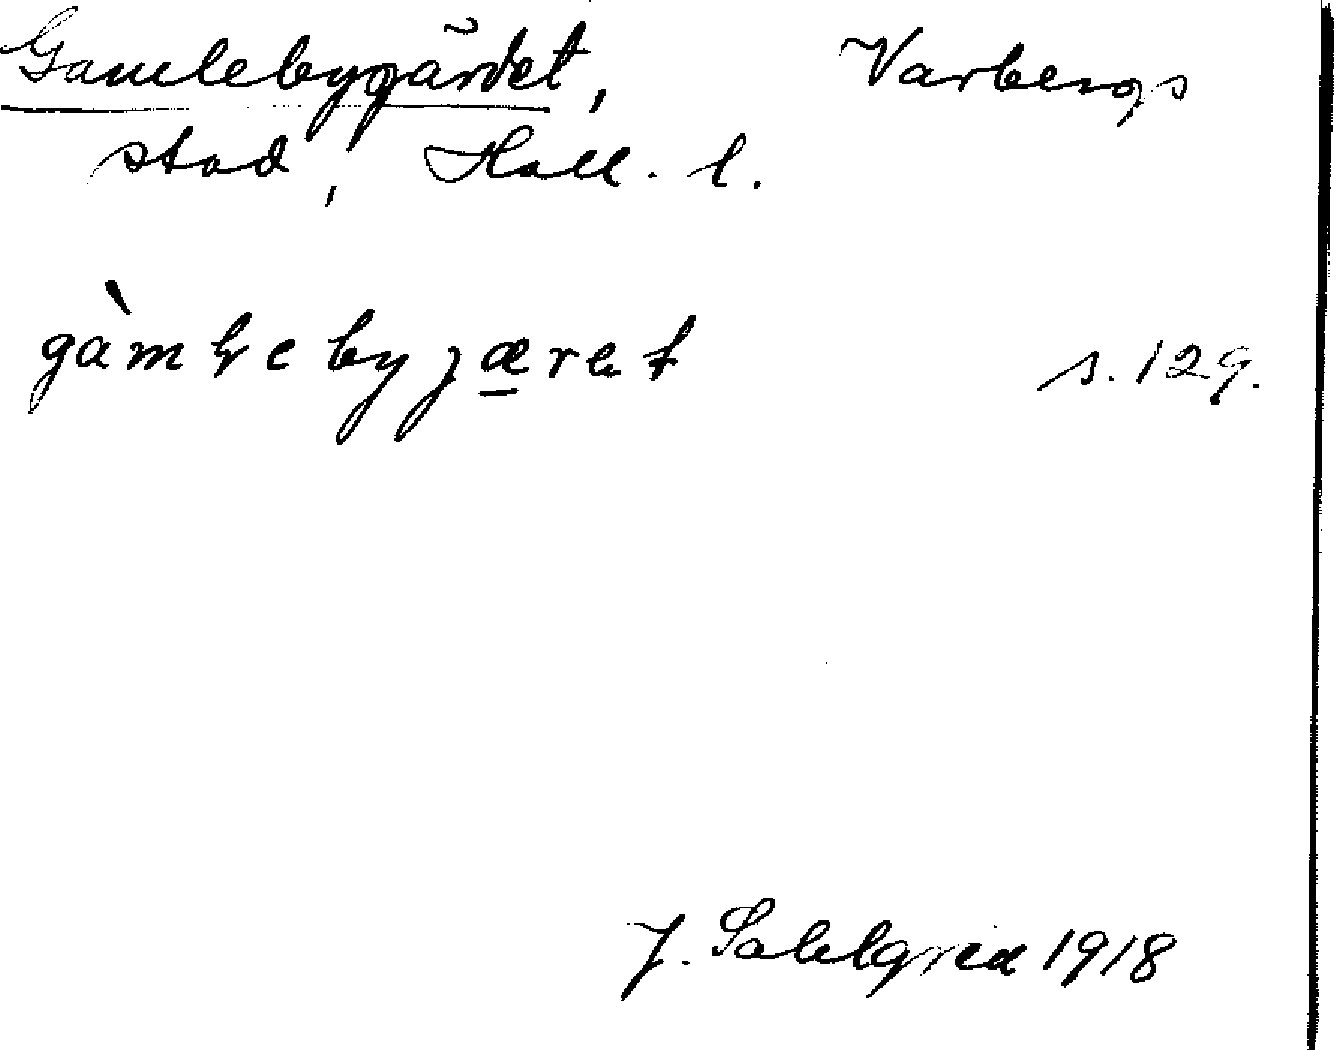 Gamlebygärdet, Varbergs
stad, Hall. l.
gàmḷebyjæret s. 129.
J. Sahlgren 1918